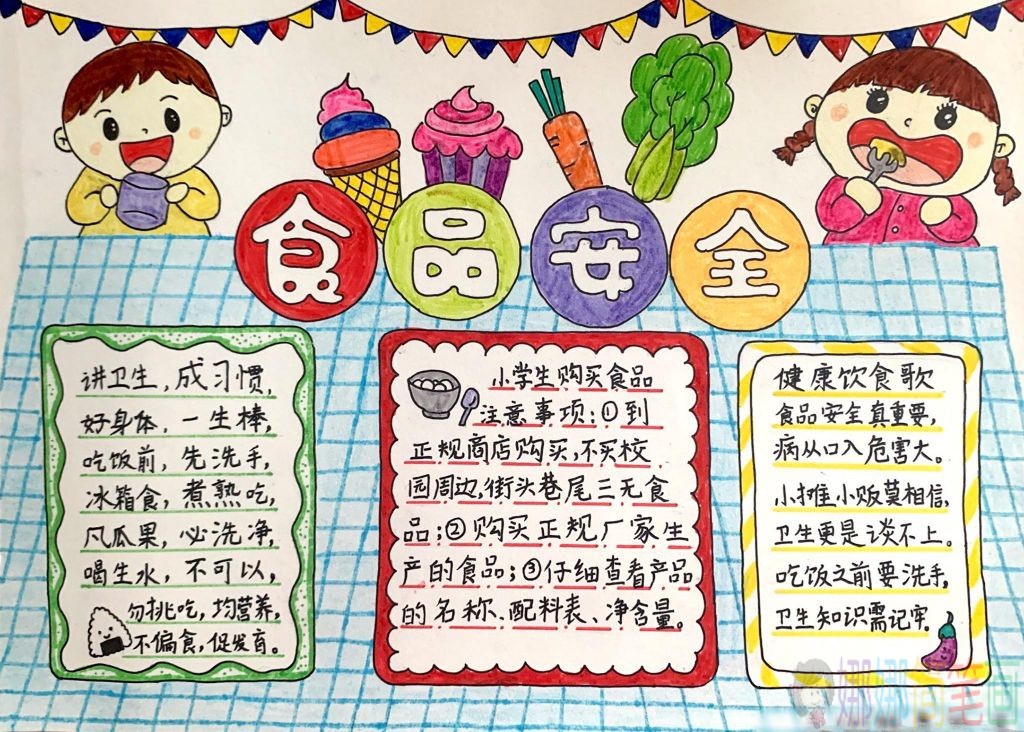 食品安全
讲卫生,成习惯,
好身体,一生棒,
吃饭前,先洗手,
冰箱食,煮熟吃,
凡瓜果,必洗净,
喝生水,不可以,
勿挑吃,均营养,
不偏食,促发育。
小学生购买食品
注意事项:①到
正规商店购买,不买校
园周边,街头巷尾三无食
品;②购买正规厂家生
产的食品;③仔细查看产品
的名称、配料表、净含量。
健康饮食歌
食品安全真重要,
病从口入危害大。
小摊小贩莫相信,
卫生更是谈不上。
吃饭之前要洗手,
卫生知识需记牢。
娜娜简笔画